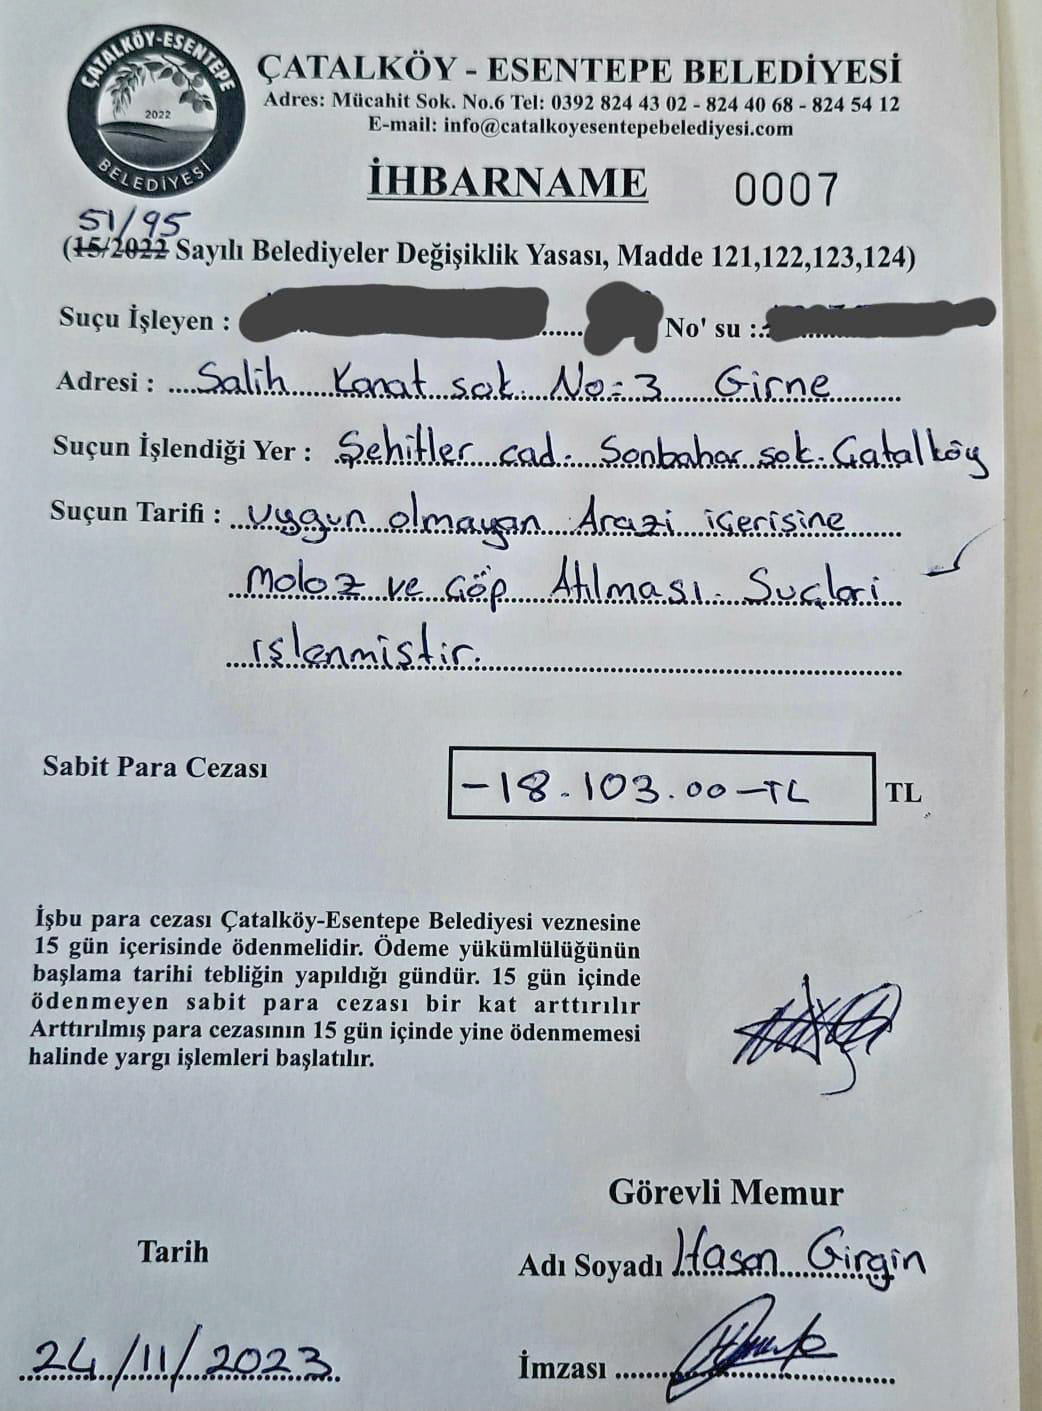 ÇATALKÖY-ESENTEPE
2022
BELEDİYESİ
ÇATALKÖY - ESENTEPE BELEDİYESİ
Adres: Mücahit Sok. No.6 Tel: 0392 824 43 02 - 824 40 68 - 824 54 12
E-mail: info@catalkoyesentepebelediyesi.com
İHBARNAME 0007
51/95
(15/2022 Sayılı Belediyeler Değişiklik Yasası, Madde 121,122,123,124)
Suçu İşleyen : No' su :
Adresi : Salih Kanat sok. No=3 Girne
Suçun İşlendiği Yer : Şehitler cad. Sonbahar sok. Çatalköy
Suçun Tarifi : uygun olmayan Arazi içerisine
Moloz ve Çöp Atılması Suçları
işlenmiştir.
Sabit Para Cezası -18.103.00-TL TL
İşbu para cezası Çatalköy-Esentepe Belediyesi veznesine
15 gün içerisinde ödenmelidir. Ödeme yükümlülüğünün
başlama tarihi tebliğin yapıldığı gündür. 15 gün içinde
ödenmeyen sabit para cezası bir kat arttırılır
Arttırılmış para cezasının 15 gün içinde yine ödenmemesi
halinde yargı işlemleri başlatılır.
Görevli Memur
Tarih
Adı Soyadı Hasan Girgin
24/11/2023
İmzası